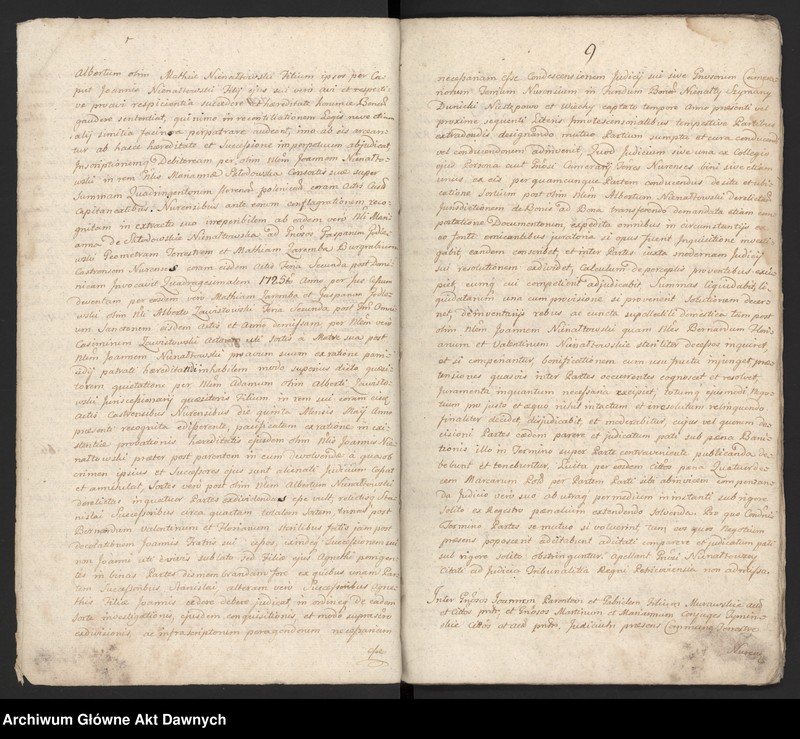 Albertum olim Mathiæ Nienałtowskii Filium ipsos per Ca
put Joannis Nienałtowskii Filij ejus sui vero avi et respecti
ve proavi respicientia succedere et hæreditate Bonis
gaudere sententiat, qui nimo in
alij similia facinora perpetrare audeant, imo ab eis arcean
tur ab hacce hæreditate et Successione imperpetuum abjudicat,
Inscriptionemq Debitoream per olim Nlem Joannem Nienałto
wski in rem Nlis Mariannæ Sałodowska Consortis suæ super
Summam Quadringentorum florenor polonical coram Actis Castr
Capitanealibus Nurensibus ante eorum conflagrationem reco
gnitam in extractu suo reperibilem ab eadem vero Nli Mari
anna De Sałodowskie Nienałtowska ad Gnosos Gasparum Godle
wski Geometram Terrestrem et Mathiam Zaremba Burgrabium
Castrensem Nurensis coram eisdem Actis Feria Secunda post Domi
nicam Invocavit Quadragesimalem 1725to Anno per Jus cessum
deventam per eosdem vero Mathiam Zaremba et Gasparum Godlew
wski olim Nli Alberto Zawistowski Feria Secunda post Omni
um Sanctorum eisdem Actis et Anno demissam per Nlem vero
Casimirum Zawistowski Actorea uti sortis a Matre sua post
Nlem Joannem Nienałtowski proavum suum ex ratione parri
cidij patrati hæreditandi inhabilem modo suprovis dicta quæsi
torem quietatione per Nlem Adamum olim Alberti Zawisto
wski Juriscessionarij quæsitoris Filium in rem sui coram eisdem
Actis Castrensibus Nurensibus die quinta Mensis Maij Anno
præsenti recognita edisserente, pacificatam ex ratione in exi
stentiæ probationis hæreditatis ejusdem olim Nlis Joannis Nie
nałtowski præter post parentem in eum devolvendæ a quavis
crimen ipsius et Successores ejus sunt alienati Judicium Cassat
et annihilat, Sortes vero post olim Nlem Albertum Nienałtowski
derelictas in quatuor Partes exdividendas esse vult, relictisq Sta
nislai Successoribus circa quartam totalem Sortem ternas post
Bernardum Valentinum et Florianum sterilibus fatis jam post
devolutorum Joannis Fratris sui cessos, eandemq Successionem sui
non Joanni uti exvivis sublato sed Filiæ ejus Agnethi accrescen
tes in binas Partes dismembrandam fore ex quibus unam Par
tem Successoribus Stanislai, alteram vero Successoribus Agne
this Filiæ Joannis cedere debere judicat, in ordineq de eadem
Sorte investigationis, ejusdem conquisitionis, et modo suprascr
exdivisionis ac infrascriptorum peragendorum necessariam
esse
9
necessariam esse Condescensionem Judicij sui sive Gnosorum Camera
riorum Terræ Nurensium in Fundum Bonor Nienałty Szymany
Dunicki Niesstepowo et Wiechy captato tempore Anno præsenti vel
proximo sequenti Literis Innotescentialibus tempestive Partibus
extradendis designando mutuo Partium sumptu et cura conducend
vel conducendorum adinvenit. Quod Judicium sive una ex Collegio
ejus Persona aut Gnosi Camerarij Terræ Nurenses bini sive etiam
unus ex eis per quamcunque Partem conducendus de situ et ubi
catione Sortium post olim Nlem Albertum Nienałtowski derelictarum
Jurisdictionem de Bonis ad Bona transferendo demandata etiam com
portatione Documentorum, expedita omnibus in circumstantijs ex
eo fonte emicantibus juratoria si opus fuerit Inquisitione investi
gabit, eandem conscribet, et inter Partes juxta modernam Judicij
sui resolutionem exdividet, Calculum de perceptis proventibus exci
piet, eumq cui competent adjudicabit, Summas liquidabit, li
quidatarum una cum provisione si provenerit solutionem decer
net, de inventarijs rebus ac cuncta supellectili domestica tam post
olim Nlem Joannem Nienałtowski quam Nles Bernardum Flori
anum et Valentinum Nienałtowskie steriliter decessos inquiret
et si compenantur, bonificationem cum usu fructu injunget, præ
tensiones quasvis inter Partes occurrentes cognoscet et resolvet,
Juramenta inquantum necessaria excipiet, totumq ejusmodi Nego
tium pro justo et æquo nihil intactum et irresolutum relinquendo
finaliter decidet disjudicabit, et moderabitur, cujus vel quorum de
cisioni Partes eædem parere et judicatum pati sub pæna Bani
tionis illo in Termino super Parte contraveniente publicanda de
bebunt et tenebuntur. Luita per easdem Cittos pæna Quatuorde
cem Marcarum Pold per Partem Parti sibi abinvicem compensan
da Judicio vero suo ab utraq per medium in instanti sub rigore
Solito ex Registro pænalium extendendo Solvenda. Pro quo Conduct
Termino Partes se mutuo si voluerint, tum eos quos Negotium
præsens poposcerit adcitabunt adcitati comparere et judicatum pati
sub rigore solito obstringuntur. Apellant Gnosi Nienałtowscy
Citati ad Judicia Tribunalitia Regni Petricoviensia non admissa.
Inter Gnosos Joannem Parentem et Fabianum Filium Murawskie act
et Cittos pntr, et Gnosos Martinum et Mariannam Conjuges Zymin
skie Cittos et act pntr, Judicium præsens Capturale Terrestre
Nuren
Archiwum Główne Akt Dawnych